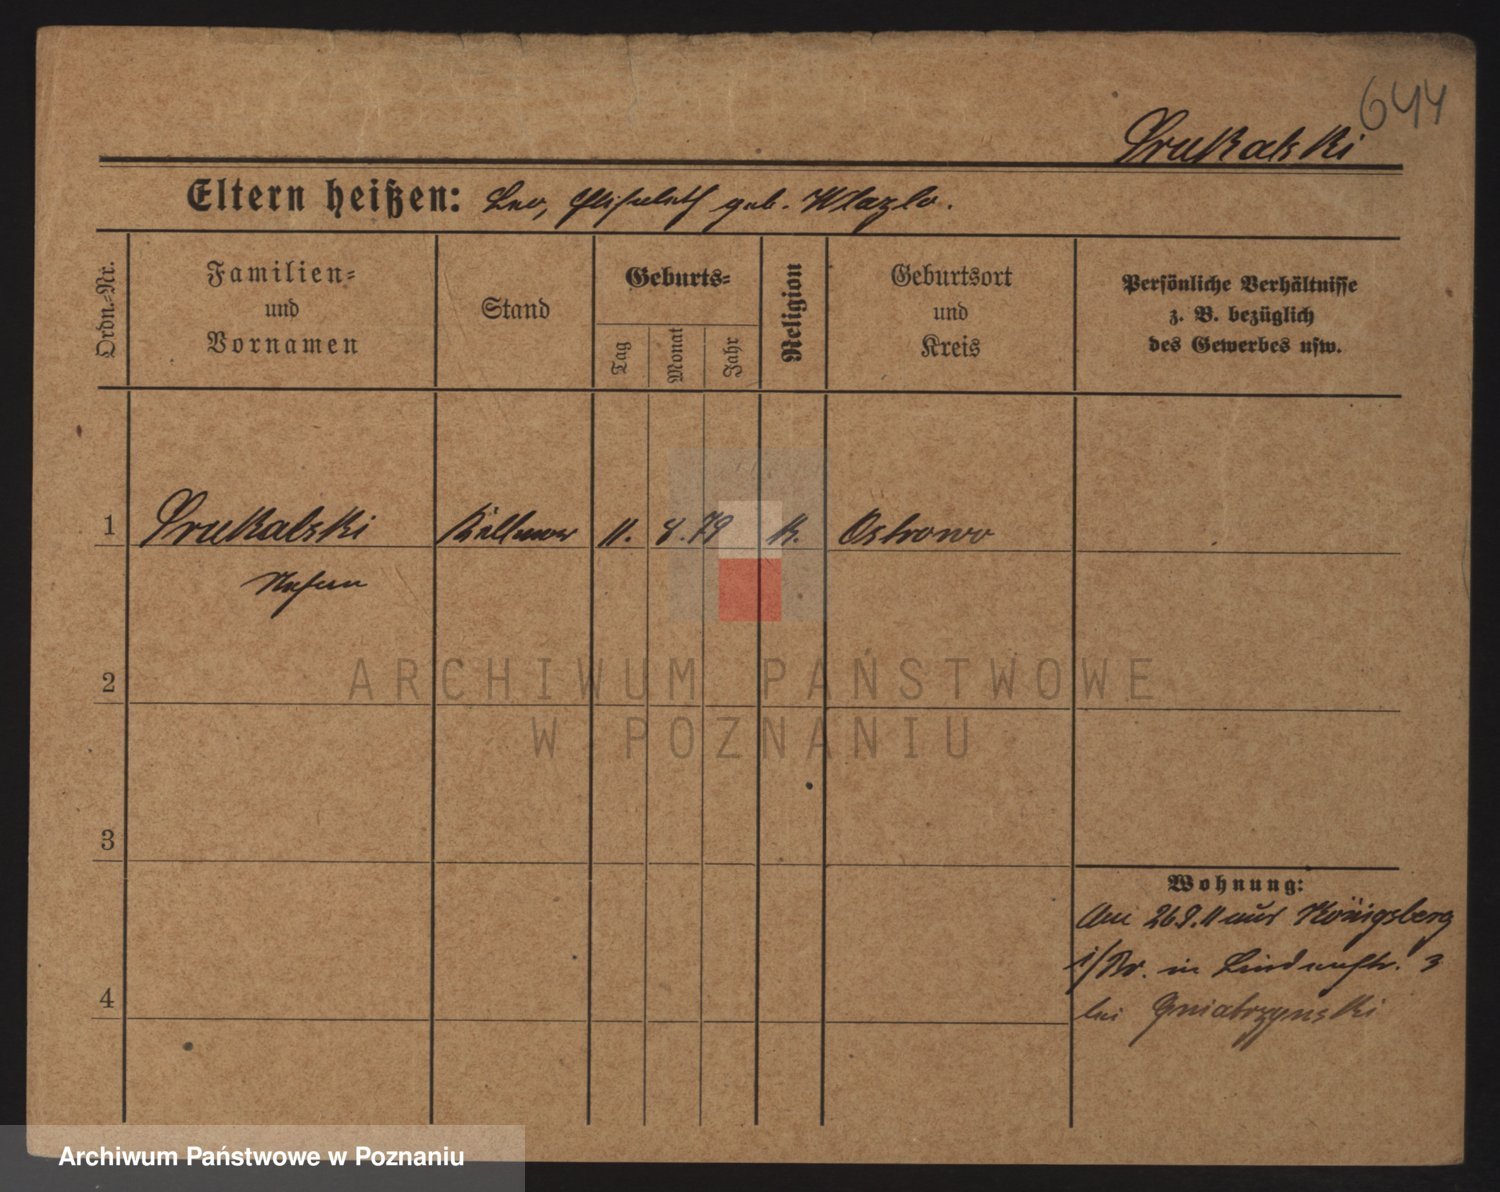 644
Srukalski
Eltern heißen: Leo, Elisabeth geb. Wlazlo.
Ordn.-Nr.
Familien-
und
Vornamen
Stand
Geburts-
Tag
Monat
Jahr
Religion
Geburtsort
und
Kreis
Persönliche Verhältnisse
z. B. bezüglich
des Gewerbes usw.
1 Srukalski Kellner 11. 8. 79 K. Ostrowo
2
3
4
Wohnung:
Am 26 9. 11 aus Königsberg
i/Pr. in Lindenstr. 3
bei Gniatczynski
ARCHIWUM PAŃSTWOWE
W POZNANIU
Archiwum Państwowe w Poznaniu